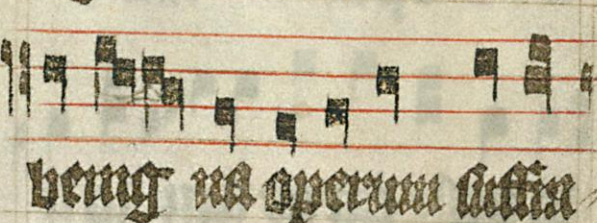 benig na operum suffra